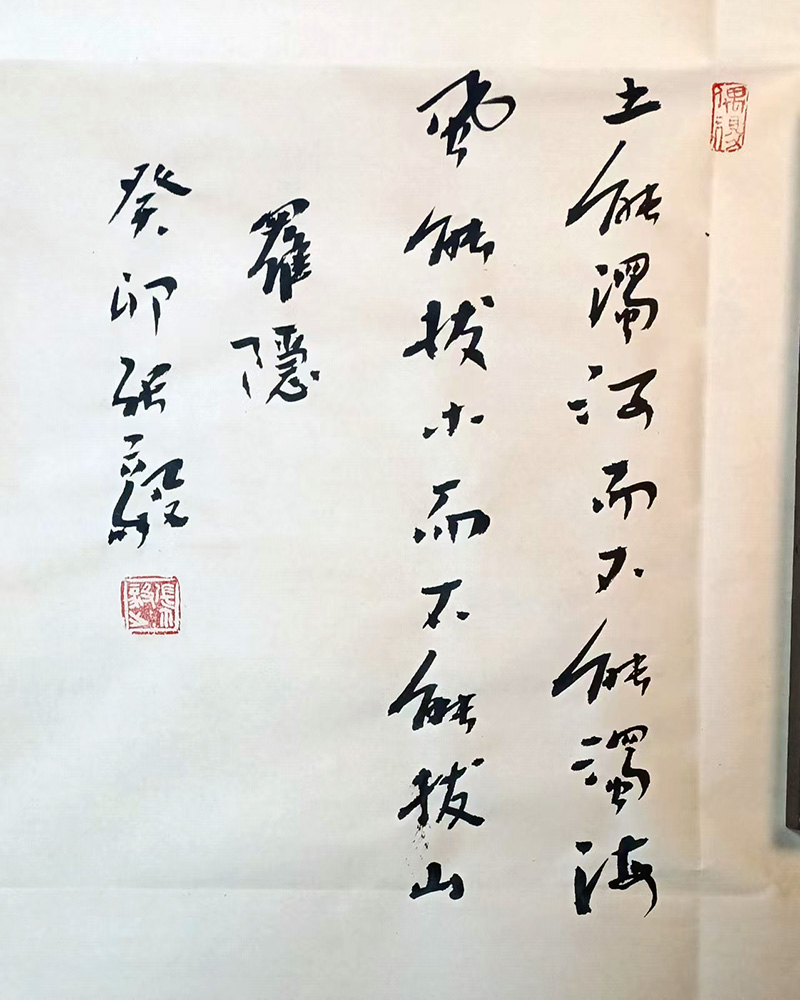 土能濁河而不能濁海
風能拔木而不能拔山
羅隱
癸卯張毅